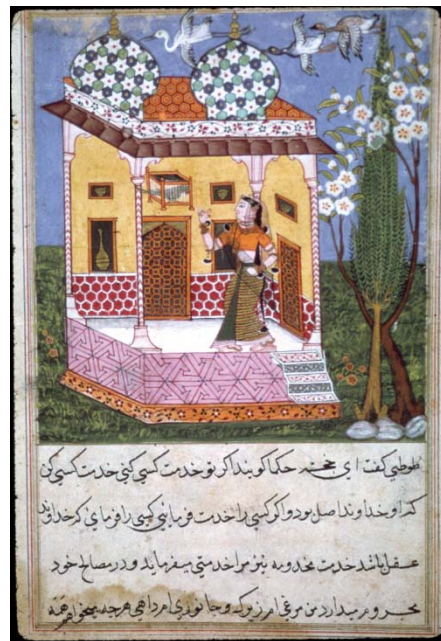 طوطی کفت ای خجسته حکما کویند اکر تو خدمت کسی کنی خدمت کسی کن
که او خداوند اصل بود و اکر کسی را خدمت فرمایی کسی را فرمای که خداوند
عقل باشد خدمت مخدومه بتو مرا خدمتی میفرماید و در مصالح خود
محروم میدارد من مرغی ام زیرک و جانوری ام داهی هرچه میخواهم همه